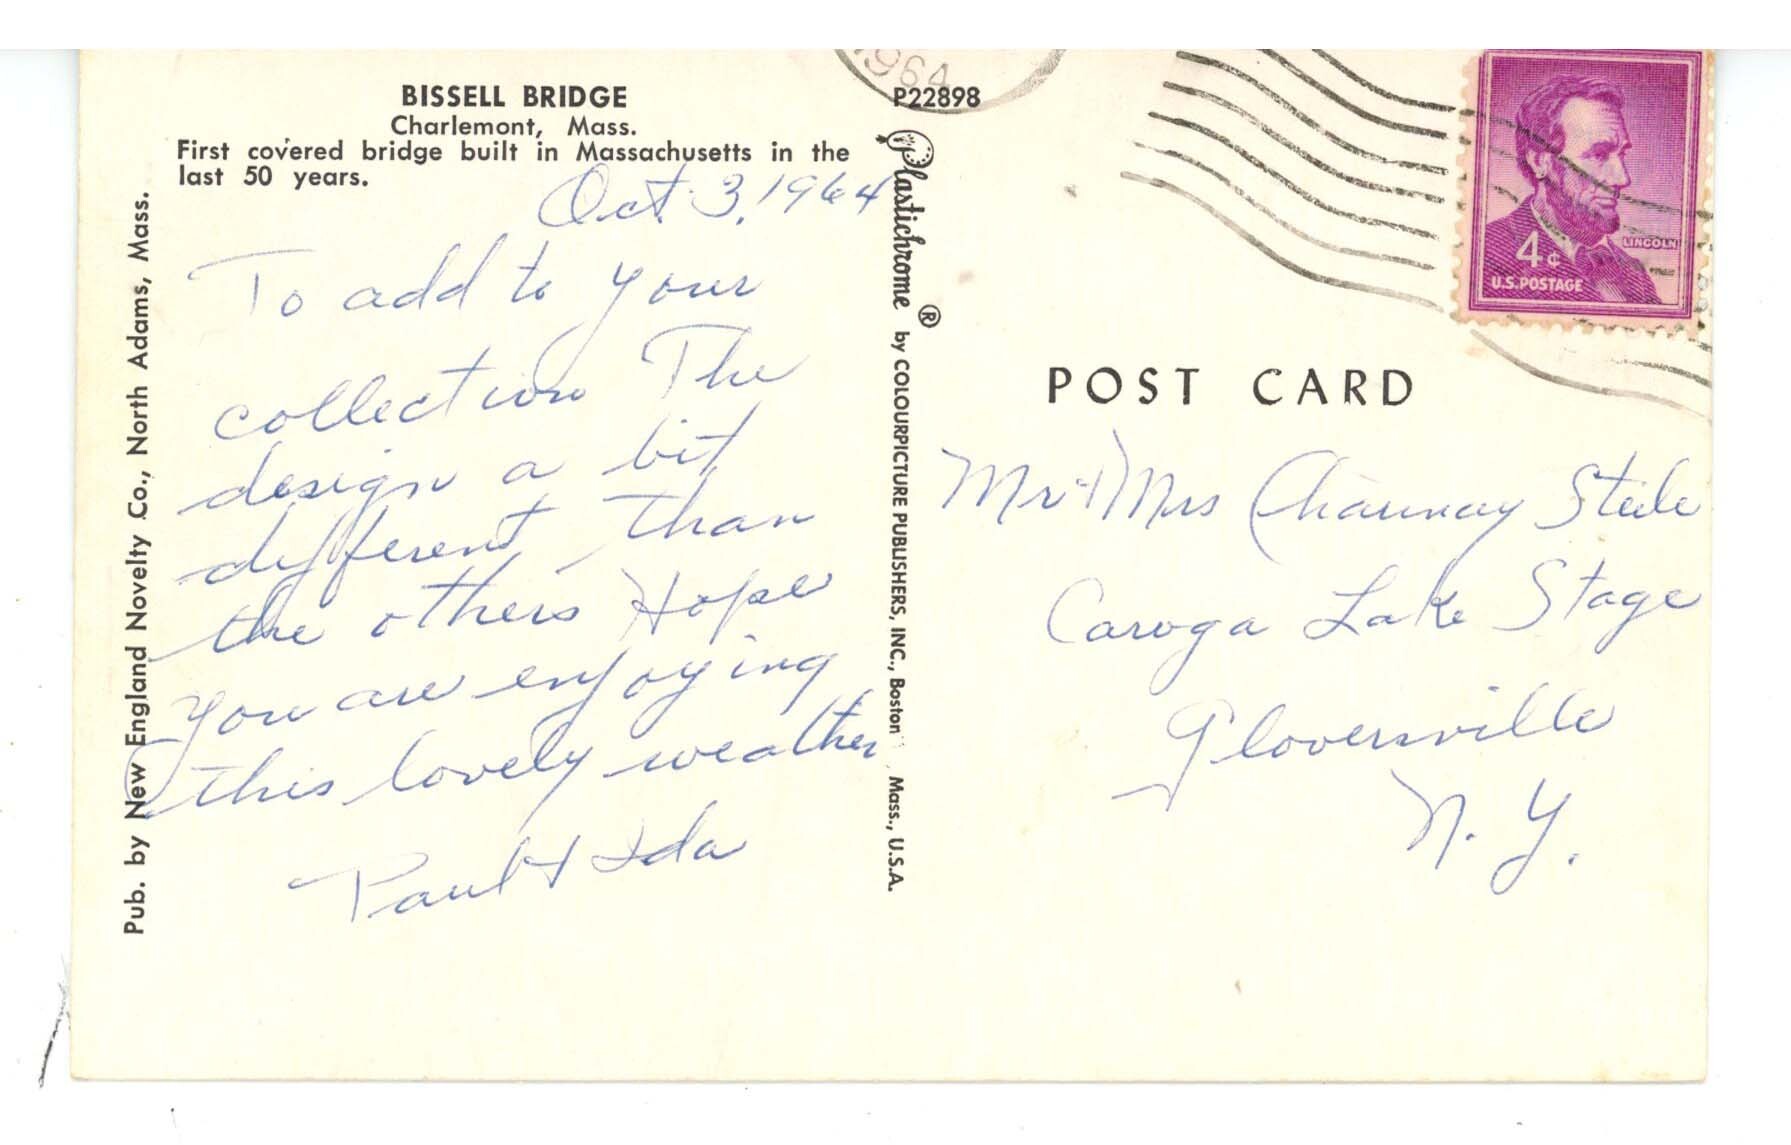 BISSELL BRIDGE
Charlemont, Mass.
First covered bridge built in Massachusetts in the
last 50 years.
Oct. 3, 1964
To add to your
collection The
design a bit
different than
the others Hope
you are enjoying
this lovely weather
Paul & Ida
Pub. by New England Novelty Co., North Adams, Mass.
1964
P22898
Plastichrome ® by COLOURPICTURE PUBLISHERS, INC., Boston Mass., U.S.A.
4¢
LINCOLN
U.S. POSTAGE
POST CARD
Mr & Mrs Chauncey Steele
Caroga Lake Stage
Gloversville
N. Y.